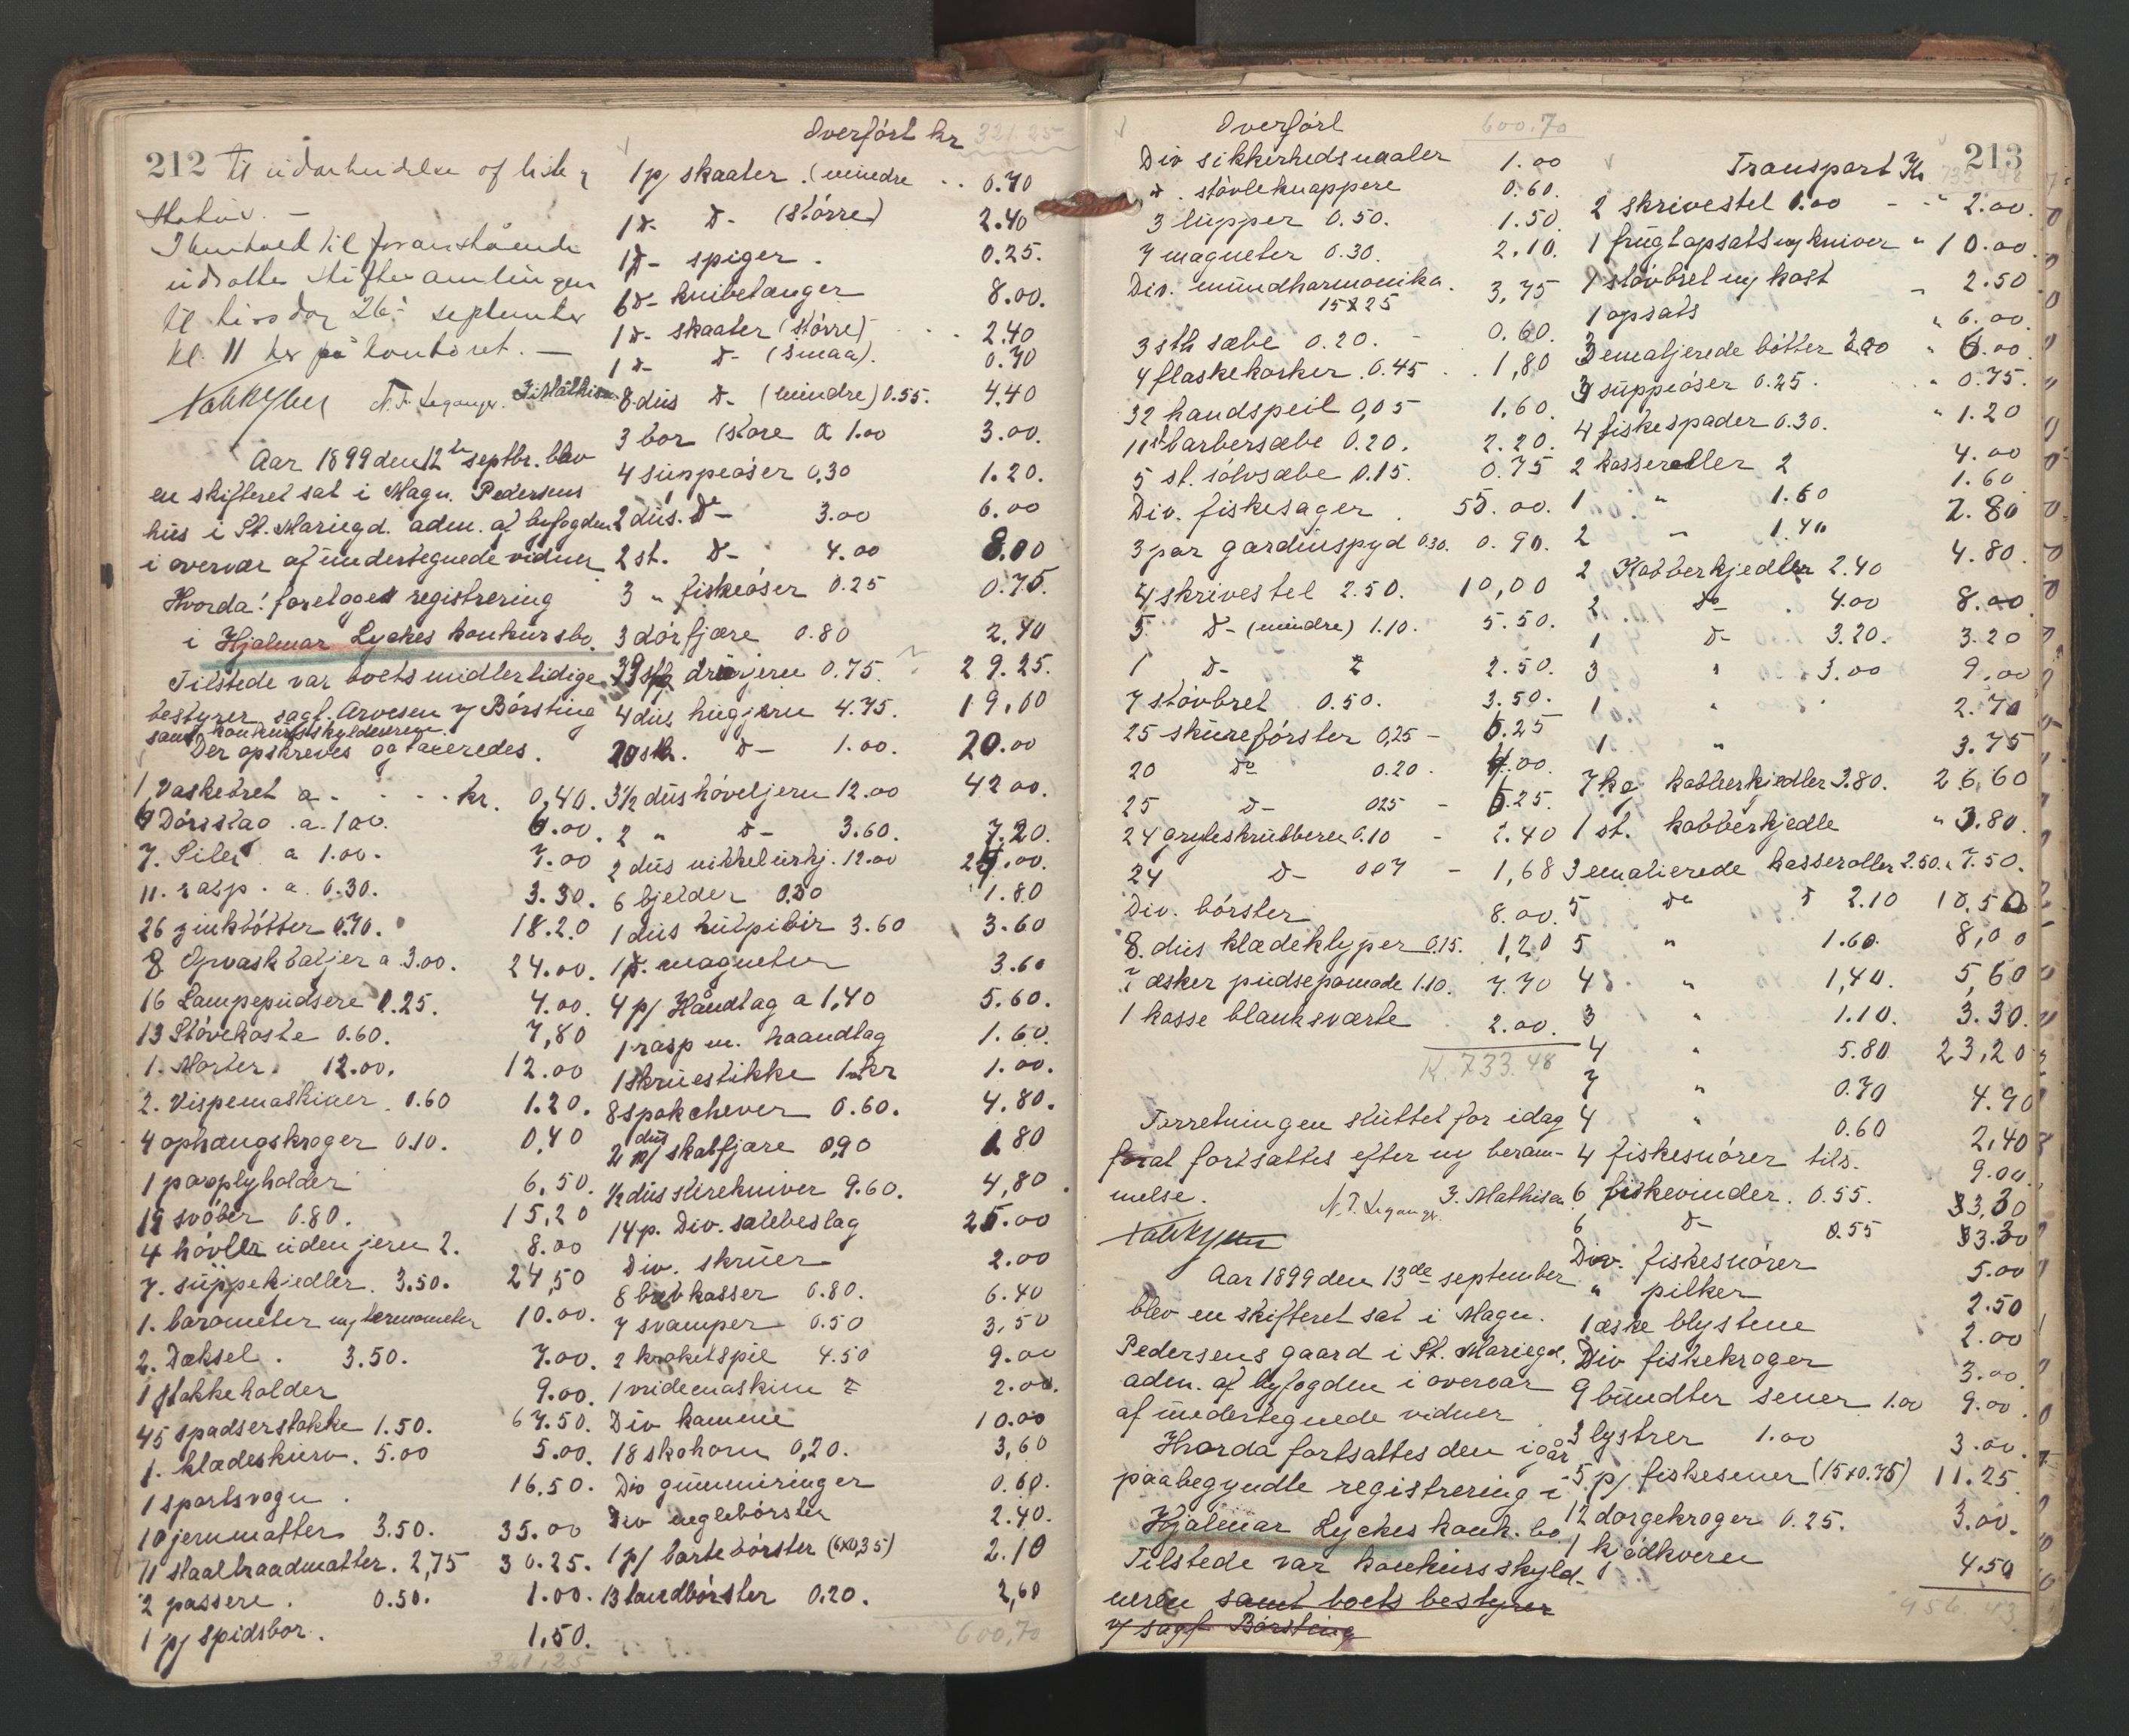 212 til udarbeidelse af liste
I henhold til foranstående
udsattes skiftesamlingen
til tirsdag 26. september
kl. 11 her på kontoret. —
N. T. Leganger. J. Mathisen
Aar 1899 den 12te septbr. blev
en skifteret sat i Magn. Pedersens
hus i St. Mariegd. adm. af byfogden
i overvær af undertegnede vidner
Hvorda! foretoges registrering
i Hjalmar Lyckes konkursbo.
Tilstede var boets midlertidige
bestyrer sagf. Arvesen v/ Börsting
samt konkursskyldneren.
Der opskreves og taxeredes.
1 Vaskebret a - - - - kr. 0,40.
6 Dörsslag . a. 1.00. 6.00.
7. Piler a 1.00. 7.00
11. rasp . a. 0.30. 3.30.
26 zinkbötter 0.70. 18.20
8 Opvaskbaljer a 3.00. 24.00.
16 Lampepudsere 0.25. 4.00.
13 Stövekoste 0.60. 7,80
1. Morter. 12.00. 12.00
2. Vispemaskiner. 0.60 1.20.
4 ophængskroger 0.10. 0,40
1 paaplyholder 6,50.
19 svöber 0.80. 15,20
4 hövler uden jern 2. 8.00
7. suppekjedler. 3.50. 24,50
1. barometer m/ termometer 10.00.
2. Dæksel . 3.50. 7.00.
1 stokkeholder 9.00.
45 spadserstokke 1.50. 67.50.
1. klædeskurv. 5.00 5.00.
1 sportsvogn . 16.50.
10 jernmatter 3.50. 35.00
11 staaltraadmatter. 2,75 30.25.
2 passere . 0.50. 1.00.
1 p/ spidsbor. 1,50.
321,25
Overfört kr 321.25
1 p/ skaater . (mindre .. 0.70
1 D- D- (större) 2.40
1 D- spiger . 0.25.
6 D- knibetænger 8.00.
1 D- skaater (större) - . . 2.40
1 D- D- (smaa). 0.70
8 dus D- (mindre) 0.55. 4,40
3 bor (store a 1.00 3.00.
4 suppeöser 0,30 1.20.
2 dus. D- 3.00 6.00
2 st. D- 4.00 8.00
3 " fiskeöser 0.25 0.75.
3 dörfjære 0.80 2.40
39 stk drivjern 0.75. 29.25.
4 dus hugjern 4.75. 19,00
20 stk. D- 1.00. 20.00
3½ dus höveljern 12.00 42 00.
2 " D- 3.60. 7.20.
2 dus nikkelurkj. 12.00 24.00.
6 bjelder 0.30 1.80
1 dus hulpibir 3.60 3.60
1 D. magneter 3.60
4 p/ Håndtag a 1,40 5.60.
1 rasp m. haandtag 1.60.
1 skruestikke 1 kr 1.00.
8 spakchever 0.60. 4.80.
2 dus skabfjære 0,90 1 80
½ dus slirekniver 9.60. 4,80.
14 p. Div. salebeslag 25.00
Div. skruer 2.00
8 brevkasser 0.80. 6.40
7 svamper 0.50 3,50
2 kroketspil 4.50 9.00
1 vridemaskine 2 2.00.
Div kamme 10.00
18 skohorn 0,20. 3,60
Div gummiringer 0.60.
Div neglebörster 2.40.
1 p/ bartebörster (6x0,35) 2.10
13 tandbörster 0.20. 2,60
600,70
Overfört 600.70
Div sikkerhedsnaaler 1.00
D. stövleknappere 0.60.
3 lupper 0.50. 1.50.
7 magneter 0.30. 2.10.
Div. mundharmonika. 3,75
15 x 25
3 stk sæbe 0.20. - 0.60.
4 flaskekorker. 0.45 . . 1,80
32 handspeil 0,05 1.60.
11 st barbersæbe 0.20. 2.20.
5 st. sölvsæbe 0.15. 0.75
Div. fiskesager . 55.00.
3 par gardinspyd 0.30. 0.90.
4 skrivestel 2.50. 10,00
5 D- (mindre) 1.10. 5.50.
1 D- 2 2.50.
7 stövbret 0.50. 3.50.
25 skurebörster 0,25 - 6.25
20 Do 0.20. 4.00.
25 D- 025 - 6.25.
24 gryteskrubbere 0.10 - 2.40
24 D- 007 - 1,68
Div. börster 8.00.
8. dus klædeklyper 0.15. 1,20
7 æsker pudsepomade 1.10. 7.70
1 kasse blanksværte 2.00.
K. 733.48
Forretningen sluttet for idag
for at fortsættes efter ny beram-
melse.
N. T. Leganger. J. Mathisen
Aar 1899 den 13de september
blev en skifteret sat i Magn.
Pedersens gaard i St. Mariegd.
adm. af byfogden i overvær
af undertegnede vidner
Hvorda fortsattes den igår
paabegyndte registrering i
Hjalmar Lyckes konk. bo
Tilstede var konkursskyld-
neren samt boets bestyrer
v/ sagf Börsting
213
Transport Kr 733.48
2 skrivestel 1.00 - - " 2.00.
1 frugtopsats m/ kniver " 10.00
1 stövbret m/ kost " 2.50
1 opsats " 6.00.
3 emaljerede bötter 2.00 " 6.00.
3 suppeöser 0.25. . " 0.75.
4 fiskespader 0.30. " 1.20
2 kasseroller 2 4.00
1 " 1.60 1.60
2 " 1.40 2.80
2 Kobberkjedler 2.40 4.80.
2 Do . 4.00 8.00.
1 D- 3.20. 3.20
3 " 3.00 9.00
1 " 2.70
1 " 3.75
7 kg kobberkjedler 3.80. 26,60
1 st. kobberkjedle " 3.80.
3 emalierede kasseroller 2.50. " 7.50.
5 Do D 2.10 10.50
5 " 1.60. 8,00
4 " 1,40. 5,60
3 " 1.10. 3.30.
4 " 5.80 23,20
7 " 0.70 4.90
4 " 0.60 2,40
4 fiskesnörer tils. 9.00.
6 fiskevinder. 0.55. 3,30
6 D- 0.55 3.30
Div. fiskesnörer 5.00
" pilker 2.50
1 æske blystene 2.00
Div fiskekroger 3.00.
9 bundter sener 1.00 9.00.
3 lystrer 1.00 3.00.
5 p/ fiskesener (15x0.75) 11.25.
12 dorgekroger 0.25. 3.00.
1 kjödkvern 4.50
956,43